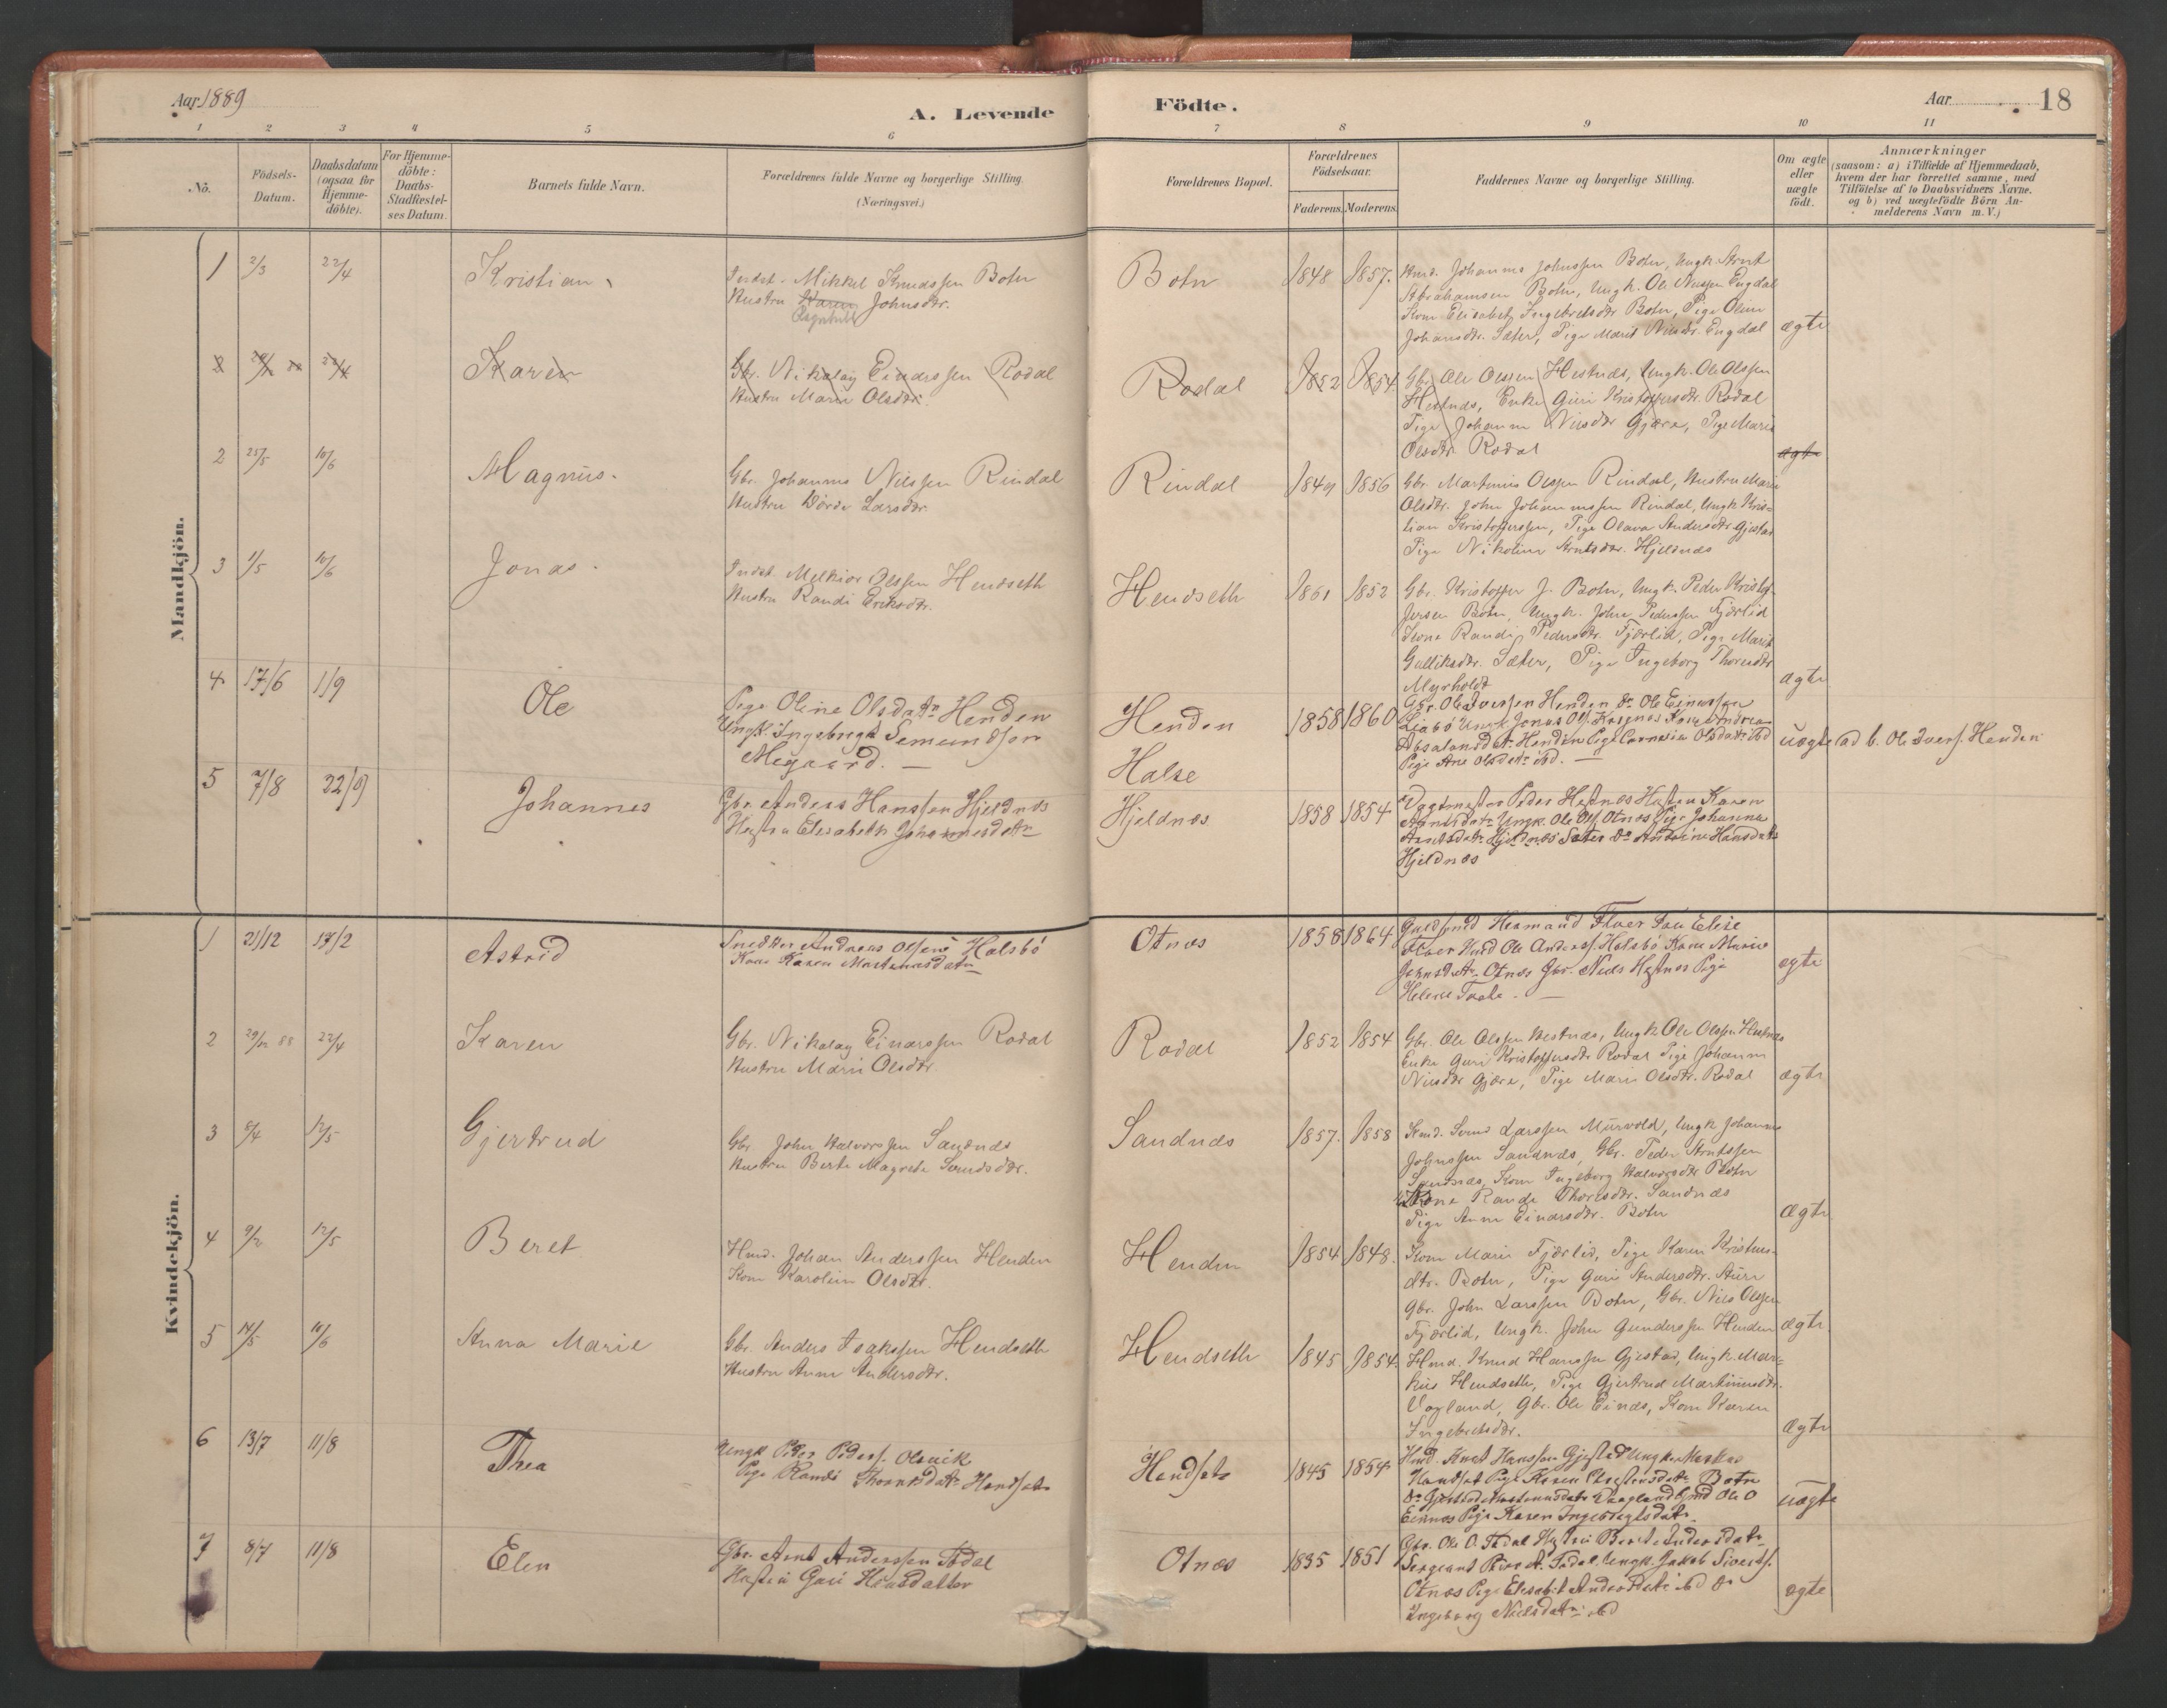 Aar 1889
A. Levende
Födte.
Aar 18
1 2 3 4 5 6 7 8 9 10 11
No.
Födsels-Datum.
Daabsdatum (ogsaa for Hjemme-döbte).
For Hjemme-döbte: Daabs-Stadfæstel-ses Datum.
Barnets fulde Navn.
Forældrenes fulde Navne og borgerlige Stilling.
(Næringsvei.)
Forældrenes Bopæl.
Forældrenes Födselsaar.
Faderens. Moderens.
Faddernes Navne og borgerlige Stilling.
Om ægte eller uægte födt.
Anmærkninger
(saasom: a) i Tilfælde af Hjemmedaab,
hvem der har forrettet samme, med
Tilföielse af to Daabsvidners Navne.
og b) ved uægtefödte Börn An-
melderens Navn m. V.)
Mandkjön.
1 2/3 22/4 Kristian
Mikkel Knudssen Botn
Hustru Karen Johnsdtr.
Botn 1848 1857.
Johannes Johnssen Botn, Ungk. Arnt
Abrahamsen Botn, Ungk. Ole Nilssen Engdal
Kone Elisabet Ingebretsdtr Botn, Pige Oline
Johansdtr. Sæter, Pige Marit Nilsdtr. Engdal
ægte
2 22/4 Karen
Gbr. Nikolay Einarssen Rodal
Hustru Marie Olsdtr.
Rodal 1852 1854
Gbr. Ole Olssen Hestnæs, Ungk. Ole Olssen
Hestnæs, Enke Guri Kristoffersdtr. Rodal
Pige Johanne Nilsdtr Gjære, Pige Marie
Olsdtr. Rodal
ægte
2 25/5 10/6 Magnus.
Gbr. Johannes Nilssen Rindal
Hustru Dorde Larsdtr.
Rindal 1849 1856
Gbr. Martinus Olssen Rindal, Hustru Marie
Olsdtr. John Johannessen Rindal, Ungk Kris-
tian Kristofferssen, Pige Olava Andersdtr Gjestad
Pige Nikoline Arntsdtr. Hjeldnæs
3 1/5 10/6 Jonas.
Indst. Melkior Olssen Hendseth
Hustru Randi Eriksdtr.
Hendseth 1861 1852
Gbr. Kristoffer J. Botn, Ungk. Peder Kristof-
fersen Botn, Ungk. John Pederssen Fjørlid
Kone Randi Pedersdtr. Fjærlid, Pige Marit
Gulliksdtr. Sæter, Pige Ingeborg Thoresdtr
Myrholdt
ægte
4 17/6 1/9 Ole
Pige Oline Olsdattr Henden
Ungk. Ingebrigt Semundsen
Megaard. —
Henden
Halse
1858 1860
Gbr. Ole Iverssen Henden do Ole Einarssen
Liabø Ungk. Jonas Ols. Kone Andrea
Absalonsdtr Henden Pige Cornelia Olsdattr ibd
Pige Ane Olsdattr ibd. —
uægte
Ole Iverss. Henden
5 7/8 22/9 Johannes
Gbr. Anders Hanssen Hjeldnæs
Hustru Elisabeth Johannesdattr
Hjeldnæs 1858 1854
Vagtmester Peder Hestnes Hustru Karen
Ungk. Ole Ols. Otnæs Pige Johanna
Arntsdattr Hjeldnæs Sæter do Hansdattr
Hjeldnæs
Kvindekjön.
1 21/12 17/2 Astrid
Snedker Andreas Olsen Halsbø
Kone Karen Mortensdattr
Otnæs 1858 1864
Guldsmed Hermand Floer Fru Elise
Floer Hmd Ole Anderss. Halsbø Kone Marie
Johnsdattr Otnæs Gbr. Niels Hestnes Pige
Helene —
ægte
2 29/12 88 22/4 Karen
Gbr. Nikolay Einarssen Rodal
Hustru Marie Olsdtr
Rodal 1852 1854
Gbr. Ole Olssen Hestnæs, Ungk Ole Olssen Hestnæs
Enke Guri Kristoffersdtr Rodal Pige Johanne
Nilsdtr Gjære, Pige Marie Olsdtr. Rodal
ægte
3 8/4 12/5 Gjertrud
Gbr. John Halvorssen Sandnæs
Hustru Berte Magrete
Sandnæs 1857. 1858
Larssen Murvold, Ungk Johannes
Johnssen Sandnæs, Gbr. Peder Arntssen
Sandnæs, Kone Ingeborg Halvorsdtr Botn
Kone Randi Thoresdtr. Sandnæs
Pige Anne Einarsdtr. Botn
ægte
4 9/2 12/5 Beret
Hmd. Johan Anderssen Henden
Kone Karoline Olsdtr.
Henden 1854 1848.
Kone Marie Fjærlid, Pige Karen Kristens-
dtr. Botn, Pige Guri Andersdtr. Aure
Gbr. John Larssen Botn, Gbr. Nils Olssen
Fjærlid, Ungk. John Gunderssen Henden
ægte
5 14/5 10/6 Anna Marie
Gbr. Anders Isakssen Hendseth
Hustru Anne Andersdtr.
Hendseth 1845 1854.
Hmd. Knud Hanssen Gjestad, Ungk. Mar-
kus Hendseth, Pige Gjertrud Martinusdtr.
Vagland, Gbr. Ole Einæs, Kone Karen
Ingebretsdtr.
ægte
6 13/7 11/8 Thea
Ungk Peder Peders. Olsvik
Pige Randi Hendset
Hendset 1845 1854
Hmd. Knut Hanssen Gjestad Ungk. Markus
Hendset Pige Karen Christensdattr Botn
do Gjertrud Martinusdattr Vaagland Hmd Ole O
Einnes Pige Karen Ingebrigtsdattr.
uægte
7 8/7 11/8 Elen
Gbr. Arnt Anderssen Todal
Hustru Guri Hansdatter
Otnæs 1835 1851
Gbr. Ole O. Todal Hustru Beret Andersdattr
Sergeant A. Todal, Ungk. Jakob Siverts.
Otnæs Pige Elisabet Andersdattr ibd do
Ingeborg Nielsdattr ibd
ægte